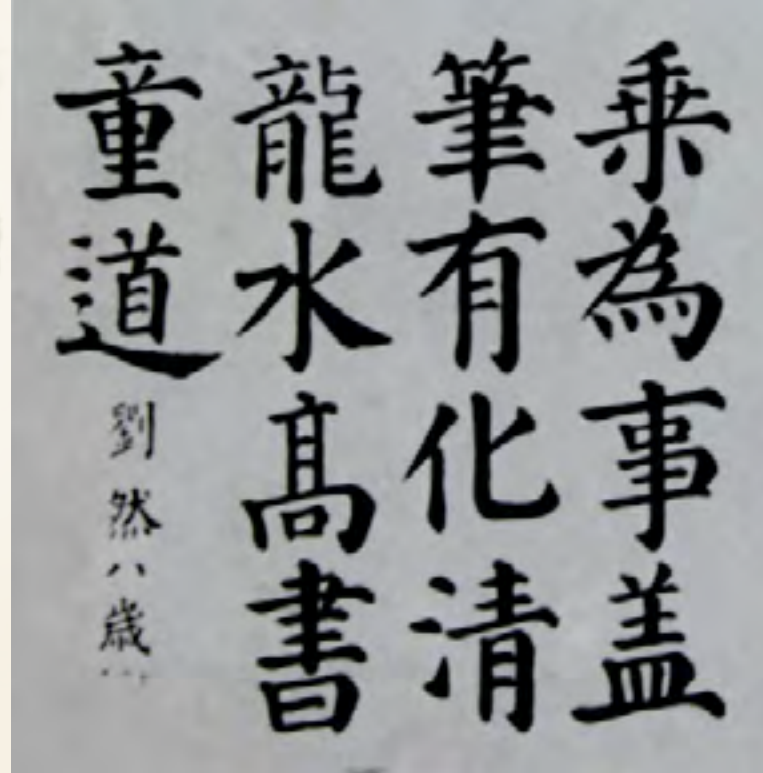 乗為事盖
筆有化清
龍水髙書
童道
劉然八歳